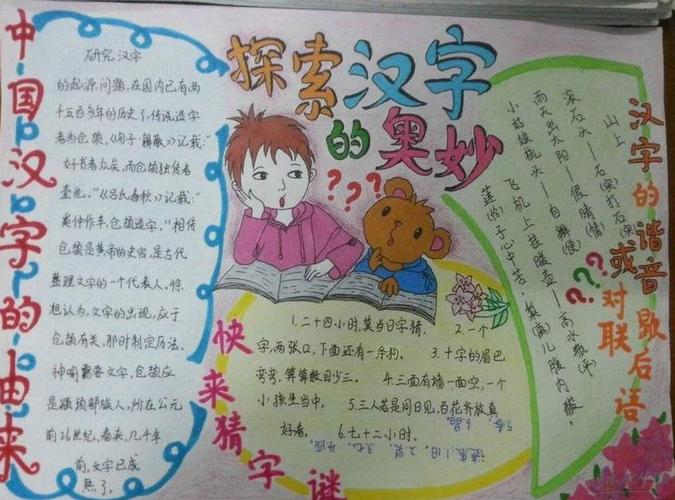 探索汉字
的奥妙
中国汉字的由来
研究汉字
的起源问题,在国内已有两
千五百多年的历史了,传说造字
者为仓颉,《荀子·解蔽》记载:"
好书者众矣,而仓颉独传者
壹也,"《吕氏春秋》记载:"
奚仲作车,仓颉造字。"相传
仓颉是黄帝的史官,是古代
整理文字的一个代表人,
想认为,文字的出现,应于
仓颉有关,那时制定历法、
神谕需要文字,仓颉应
是颛顼部族人,所在公元
前26世纪,看来,几千年
前,文字已成
熟了。
???
快来猜字谜
1.二十四小时,莫当日字猜。 2.一个
字,两张口,下面还有一条狗。 3.十字的眉巴
弯弯,算算数目少三。 4.三面有墙一面空,一个
小孩坐当中。 5.三人若是同日见,百花齐放真
好看。 6.七十二小时。
汉字的谐音歇后语
或对联
???
山上
滚石头——石(实)打石(实)
雨天出太阳——假晴(情)
小姑娘梳头——自辫(便)
飞机上挂暖壶——高水瓶(平)
莲(怜)子心中苦,梨(离)儿腹内酸。